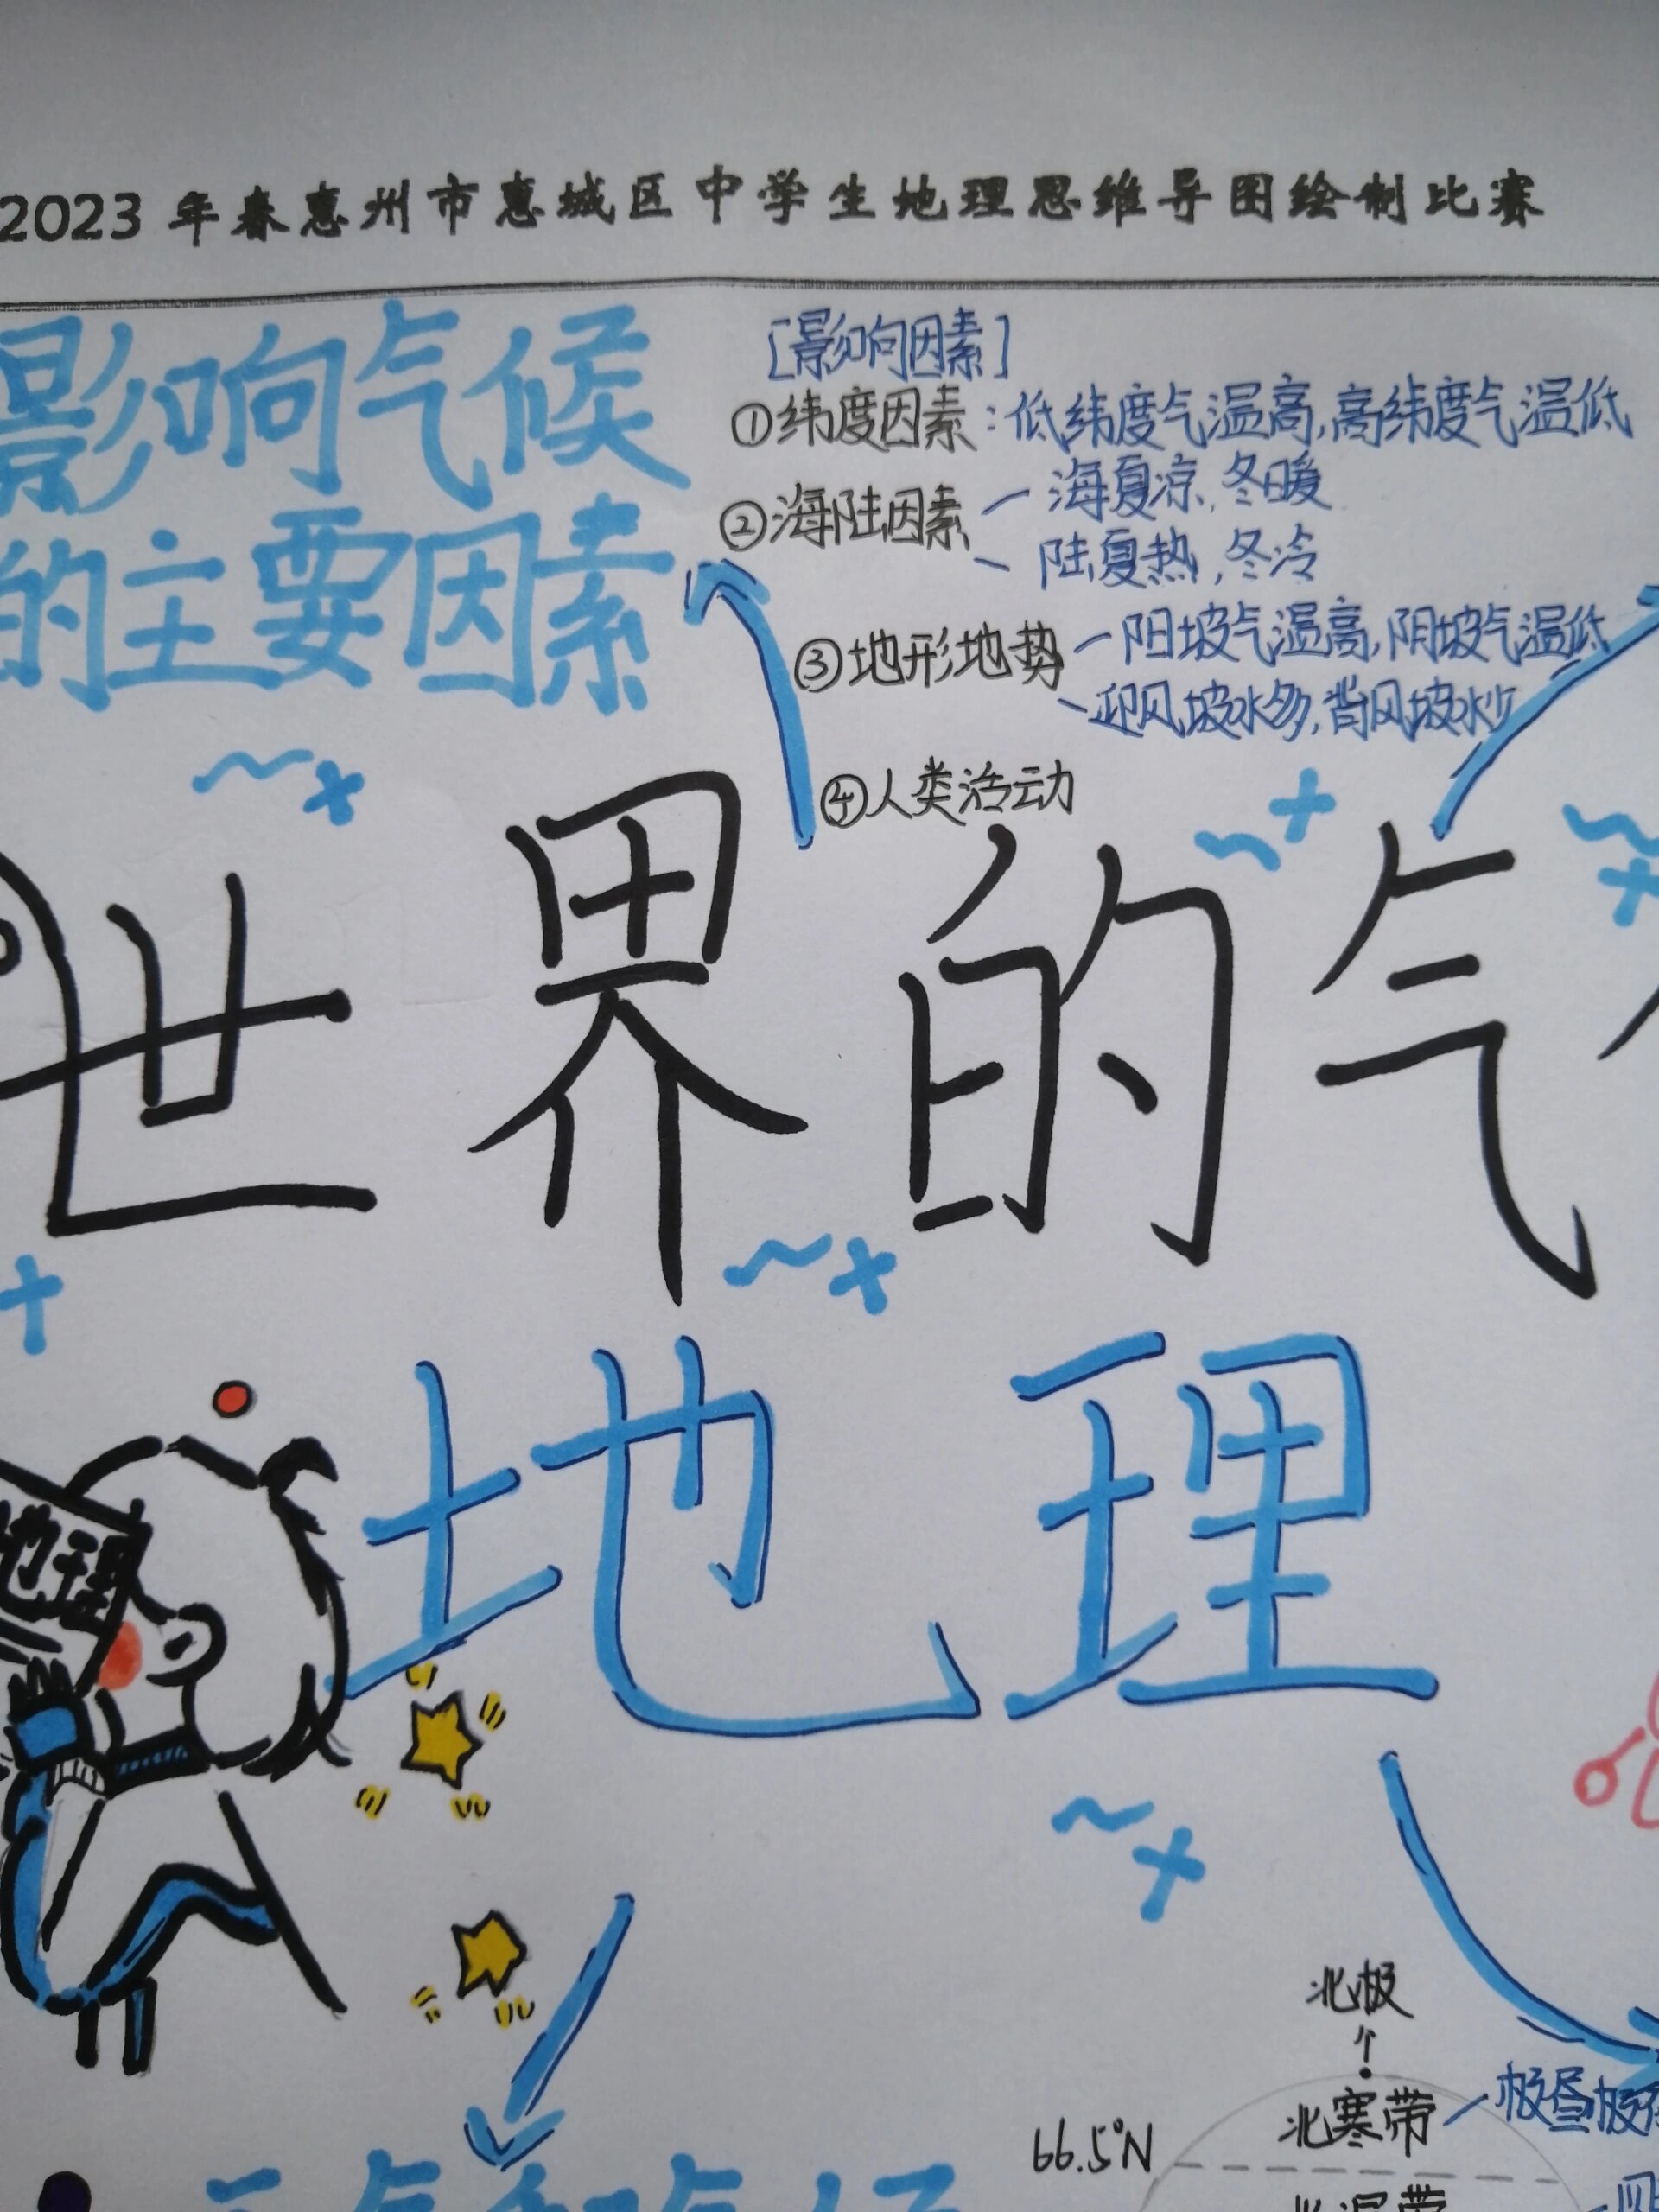 2023年春惠州市惠城区中学生地理思维导图绘制比赛
影响气候
的主要因素
[影响因素]
①纬度因素:低纬度气温高,高纬度气温低
②海陆因素 海夏凉,冬暖
陆夏热,冬冷
③地形地势 阳坡气温高,阴坡气温低
迎风坡水多,背风坡水少
④人类活动
世界的气
地理
地理
北极
北寒带 极昼极
66.5°N